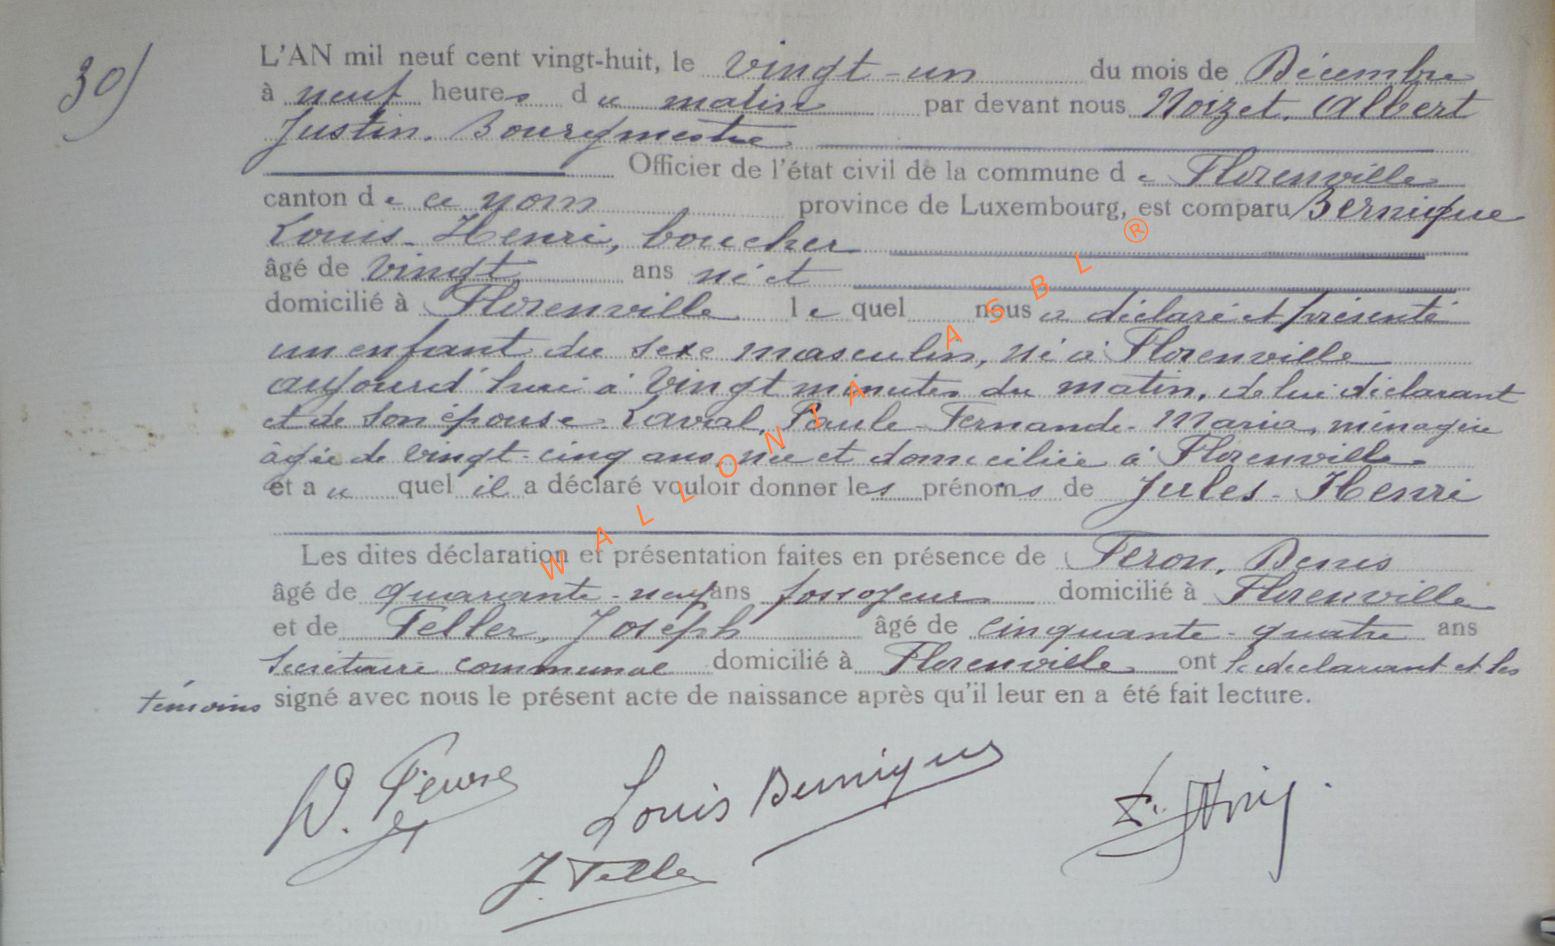 30)
L'AN mil neuf cent vingt-huit, le vingt-un du mois de Décembre
à neuf heures du matin par devant nous Noizet, Albert
Justin, Bourgmestre
Officier de l'état civil de la commune de Florenville
canton de ce nom province de Luxembourg, est comparu Bernique
Louis-Henri, boucher
âgé de vingt ans né et
domicilié à Florenville lequel nous a déclaré et présenté
un enfant du sexe masculin, né à Florenville
aujourd'hui à vingt minutes du matin, de lui déclarant
et de son épouse Laval, Paule-Fernande-Maria, ménagère
âgée de vingt-cinq ans, née et domiciliée à Florenville
et auquel il a déclaré vouloir donner les prénoms de Jules-Henri
Les dites déclaration et présentation faites en présence de Feron, Denis
âgé de quarante-neuf ans fossoyeur domicilié à Florenville
et de Feller, Joseph âgé de cinquante-quatre ans
Secrétaire communal domicilié à Florenville ont le déclarant et les
témoins signé avec nous le présent acte de naissance après qu'il leur en a été fait lecture.
D.
Louis Bernique
J. Feller
WALLONIA ASBL ®